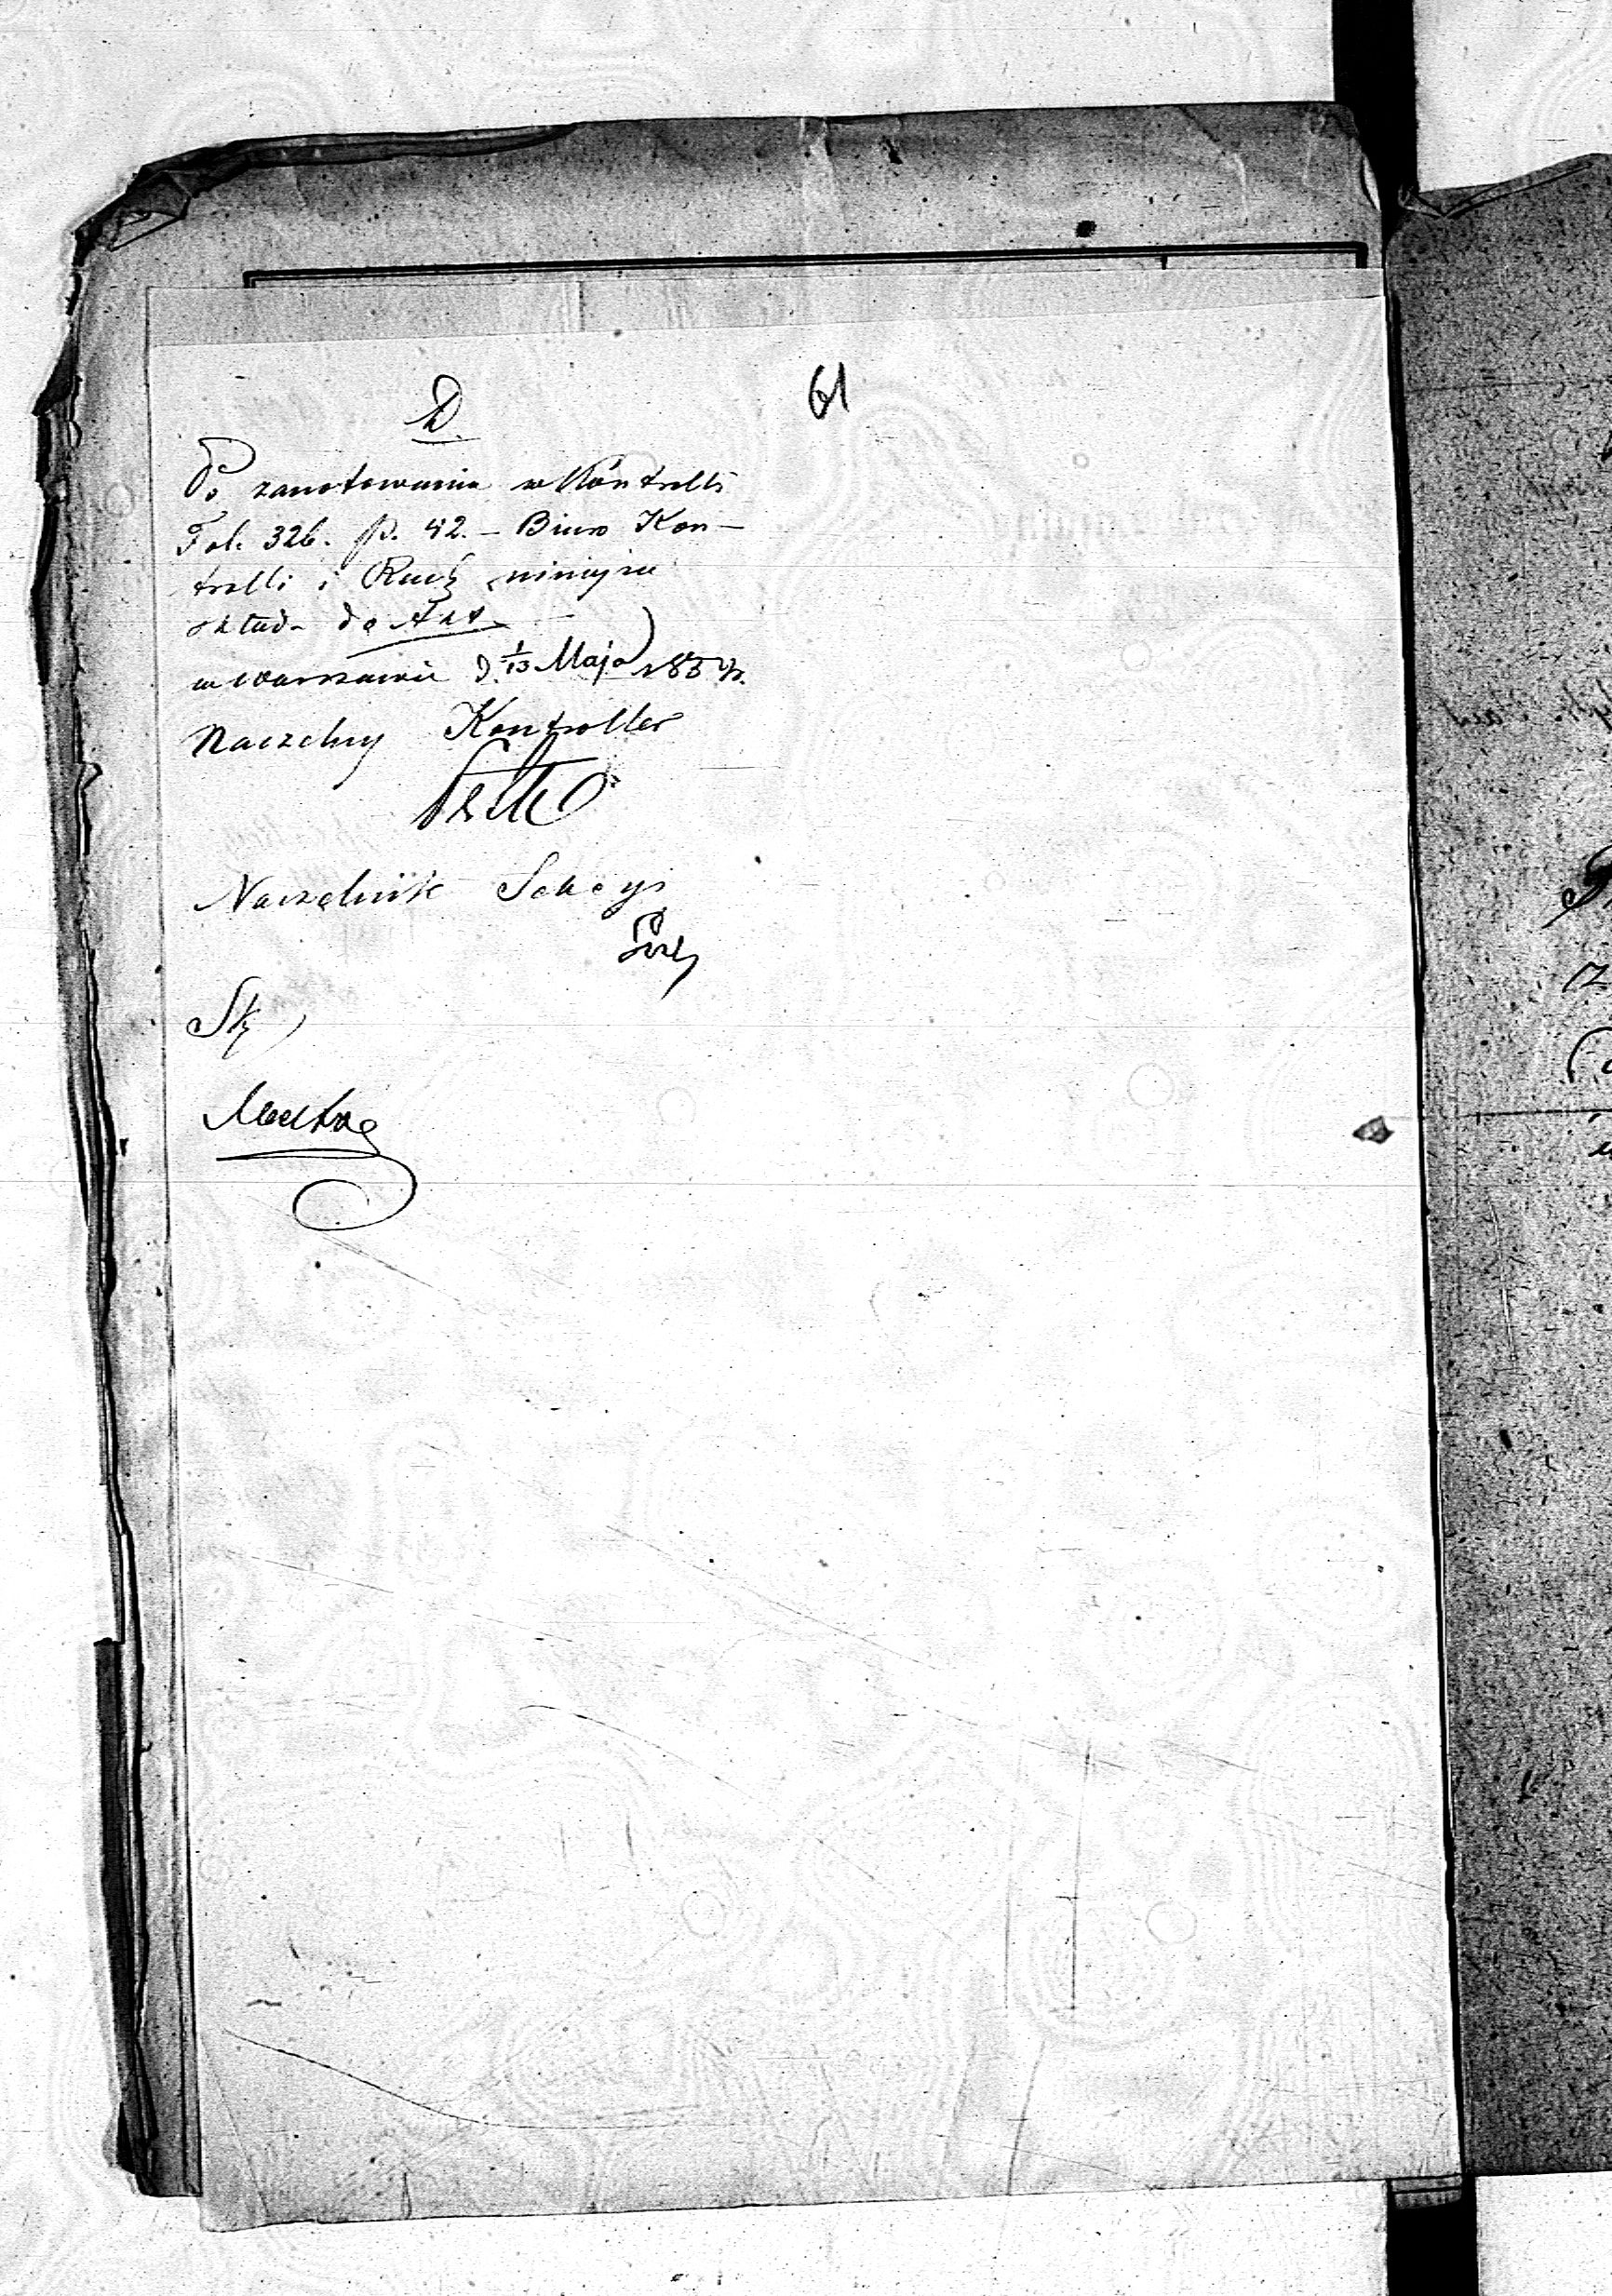 61
D.
Po zanotowaniu w Kontrolli
Fol. 326. p. 42. – Biuro Kon-
trolli i Rach niniejsze
składa do Akt
w Warszawie d. 1/13 Maja 185
Naczelny Kontroller
Naczelnik Sekcyi